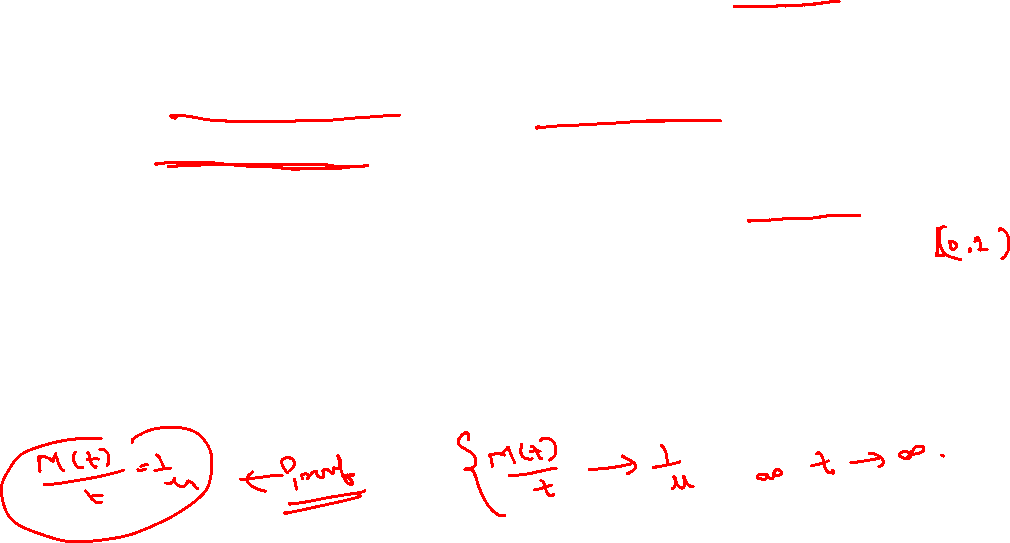 [0,1)
M(t)/t = 1/μ ← Proof { M(t)/t → 1/μ as t → ∞.